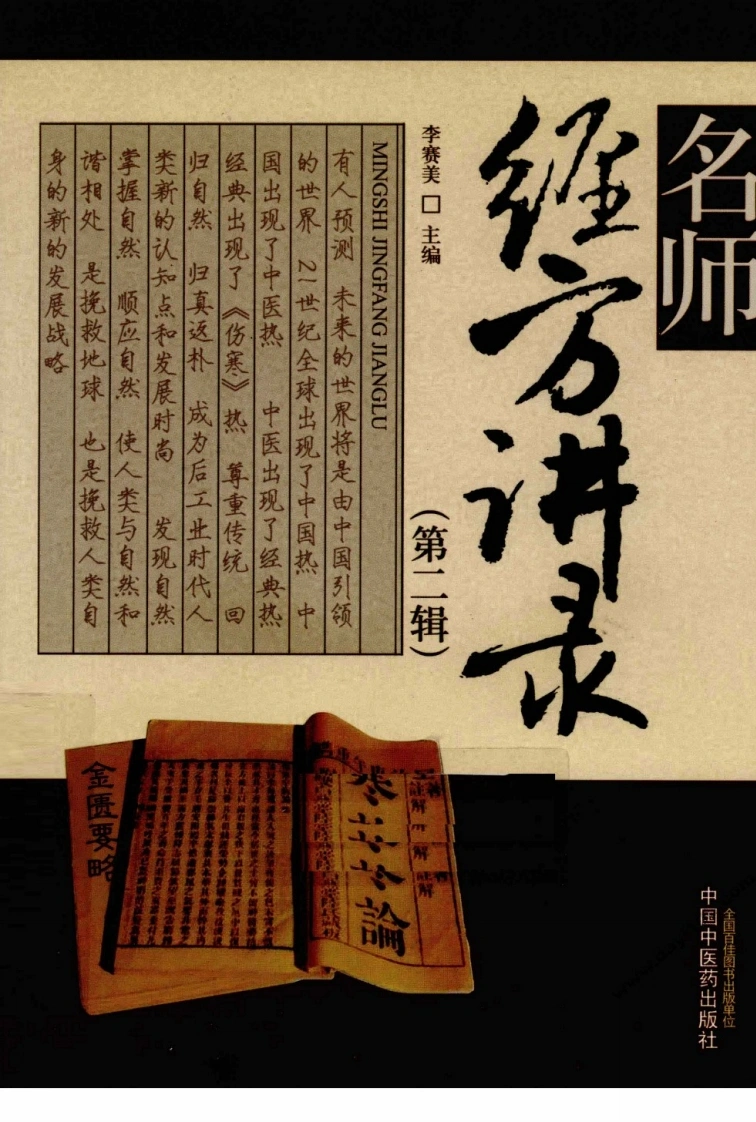 名师
经方讲录
（第二辑）
李赛美 □ 主编
MINGSHI JINGFANG JIANGLU
有人预测 未来的世界将是由中国引领
的世界 21世纪全球出现了中国热 中
国出现了中医热 中医出现了经典热
经典出现了《伤寒》热 尊重传统 回
归自然 归真返朴 成为后工业时代人
类新的认知点和发展时尚 发现自然
掌握自然 顺应自然 使人类与自然和
谐相处 是挽救地球 也是挽救人类自
身的新的发展战略
金匮要略
论
註解
解
註解
全国百佳图书出版单位
中国中医药出版社